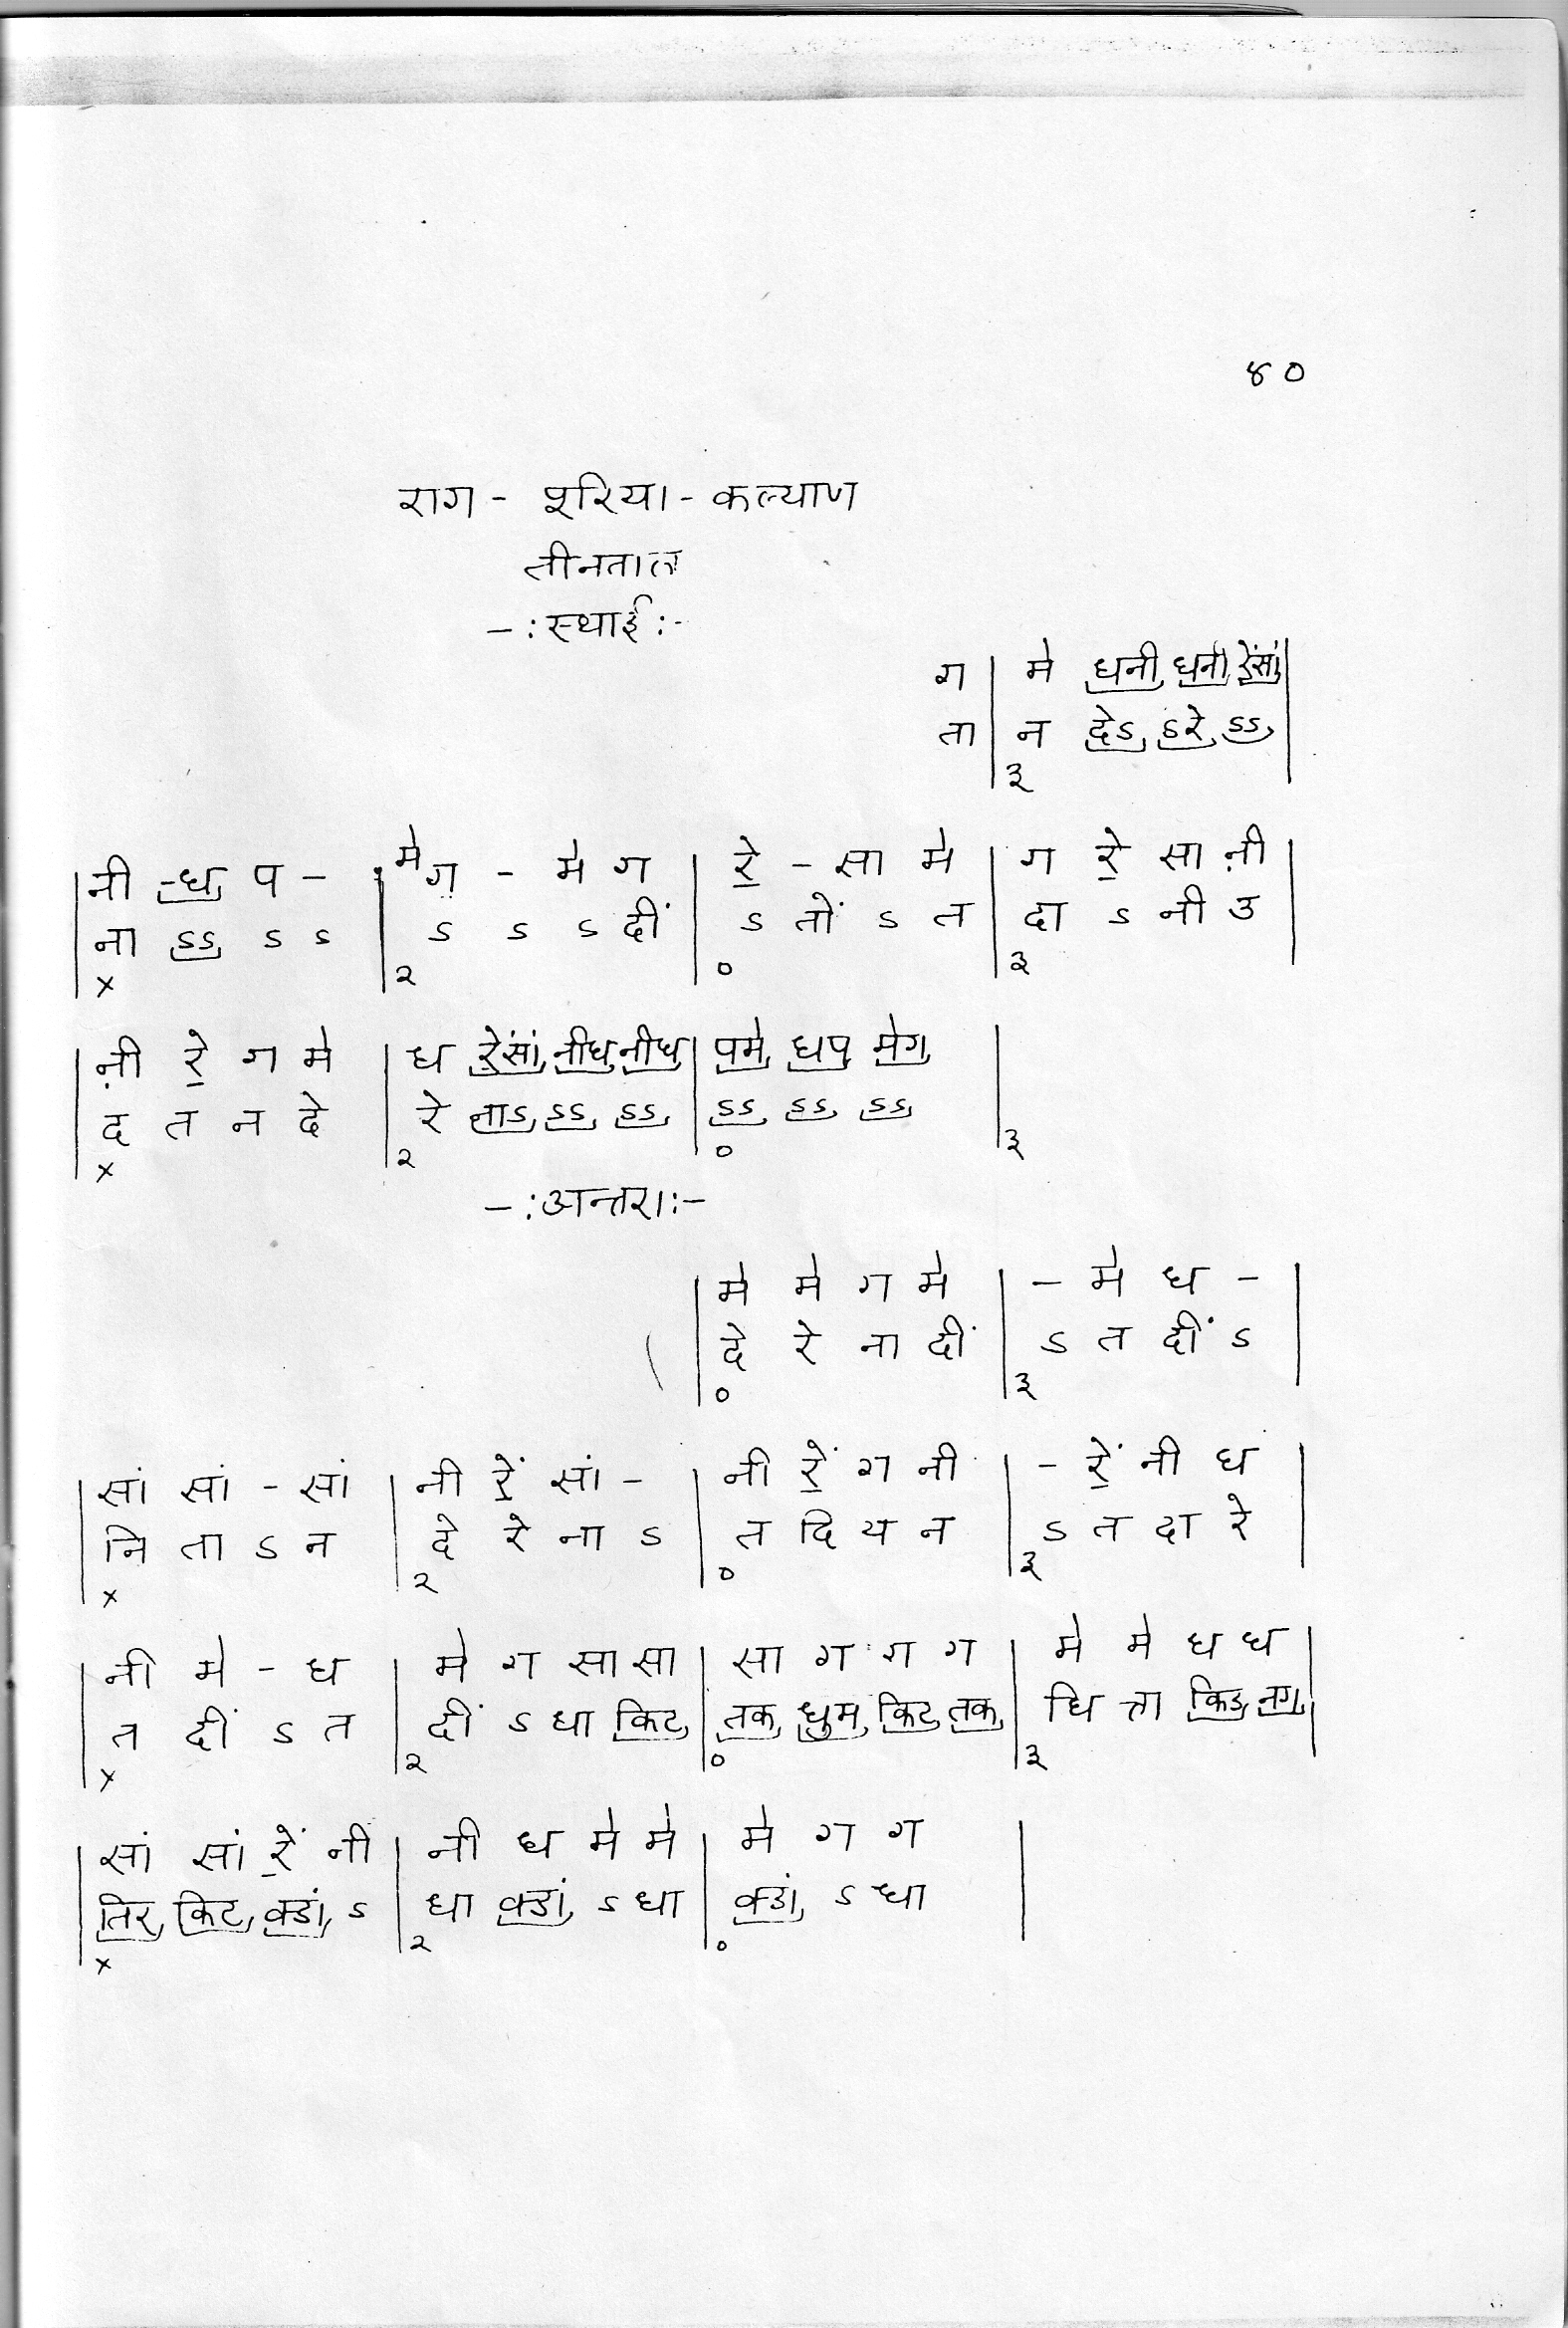 ४०
राग - पूरिया - कल्याण
तीनताल
-:स्थाई:-
ग | मे॑ धनी धनी रे॒ंसां |
ता | न देऽ ऽरे ऽऽ |
३
| नी -ध प - | मे॑ग - मे॑ ग | रे॒ - सा मे॑ | ग रे॒ सा ऩी |
| ना ऽऽ ऽ ऽ | ऽ ऽ ऽ दीं | ऽ तों ऽ त | दा ऽ नी उ |
x २ ० ३
| ऩी रे॒ ग मे॑ | ध रे॒ंसां नीध नीध | पमे॑ धप मे॑ग |
| द त न दे | रे नाऽ ऽऽ ऽऽ | ऽऽ ऽऽ ऽऽ |
x २ ० ३
-:अन्तरा:-
| मे॑ मे॑ ग मे॑ | - मे॑ ध - |
| दे रे ना दीं | ऽ त दीं ऽ |
० ३
| सां सां - सां | नी रे॒ं सां - | नी रे॒ं गं नी | - रे॒ं नी ध |
| नि ता ऽ न | दे रे ना ऽ | त दि य न | ऽ त दा रे |
x २ ० ३
| नी मे॑ - ध | मे॑ ग सा सा | सा ग ग ग | मे॑ मे॑ ध ध |
| त दीं ऽ त | दीं ऽ धा किट | तक धुम किट तक | धि त्ता किड नग |
x २ ० ३
| सां सां रे॒ं नी | नी ध मे॑ मे॑ | मे॑ ग ग |
| तिर किट क्डां ऽ | धा क्डां ऽ धा | क्डां ऽ धा |
x २ ०